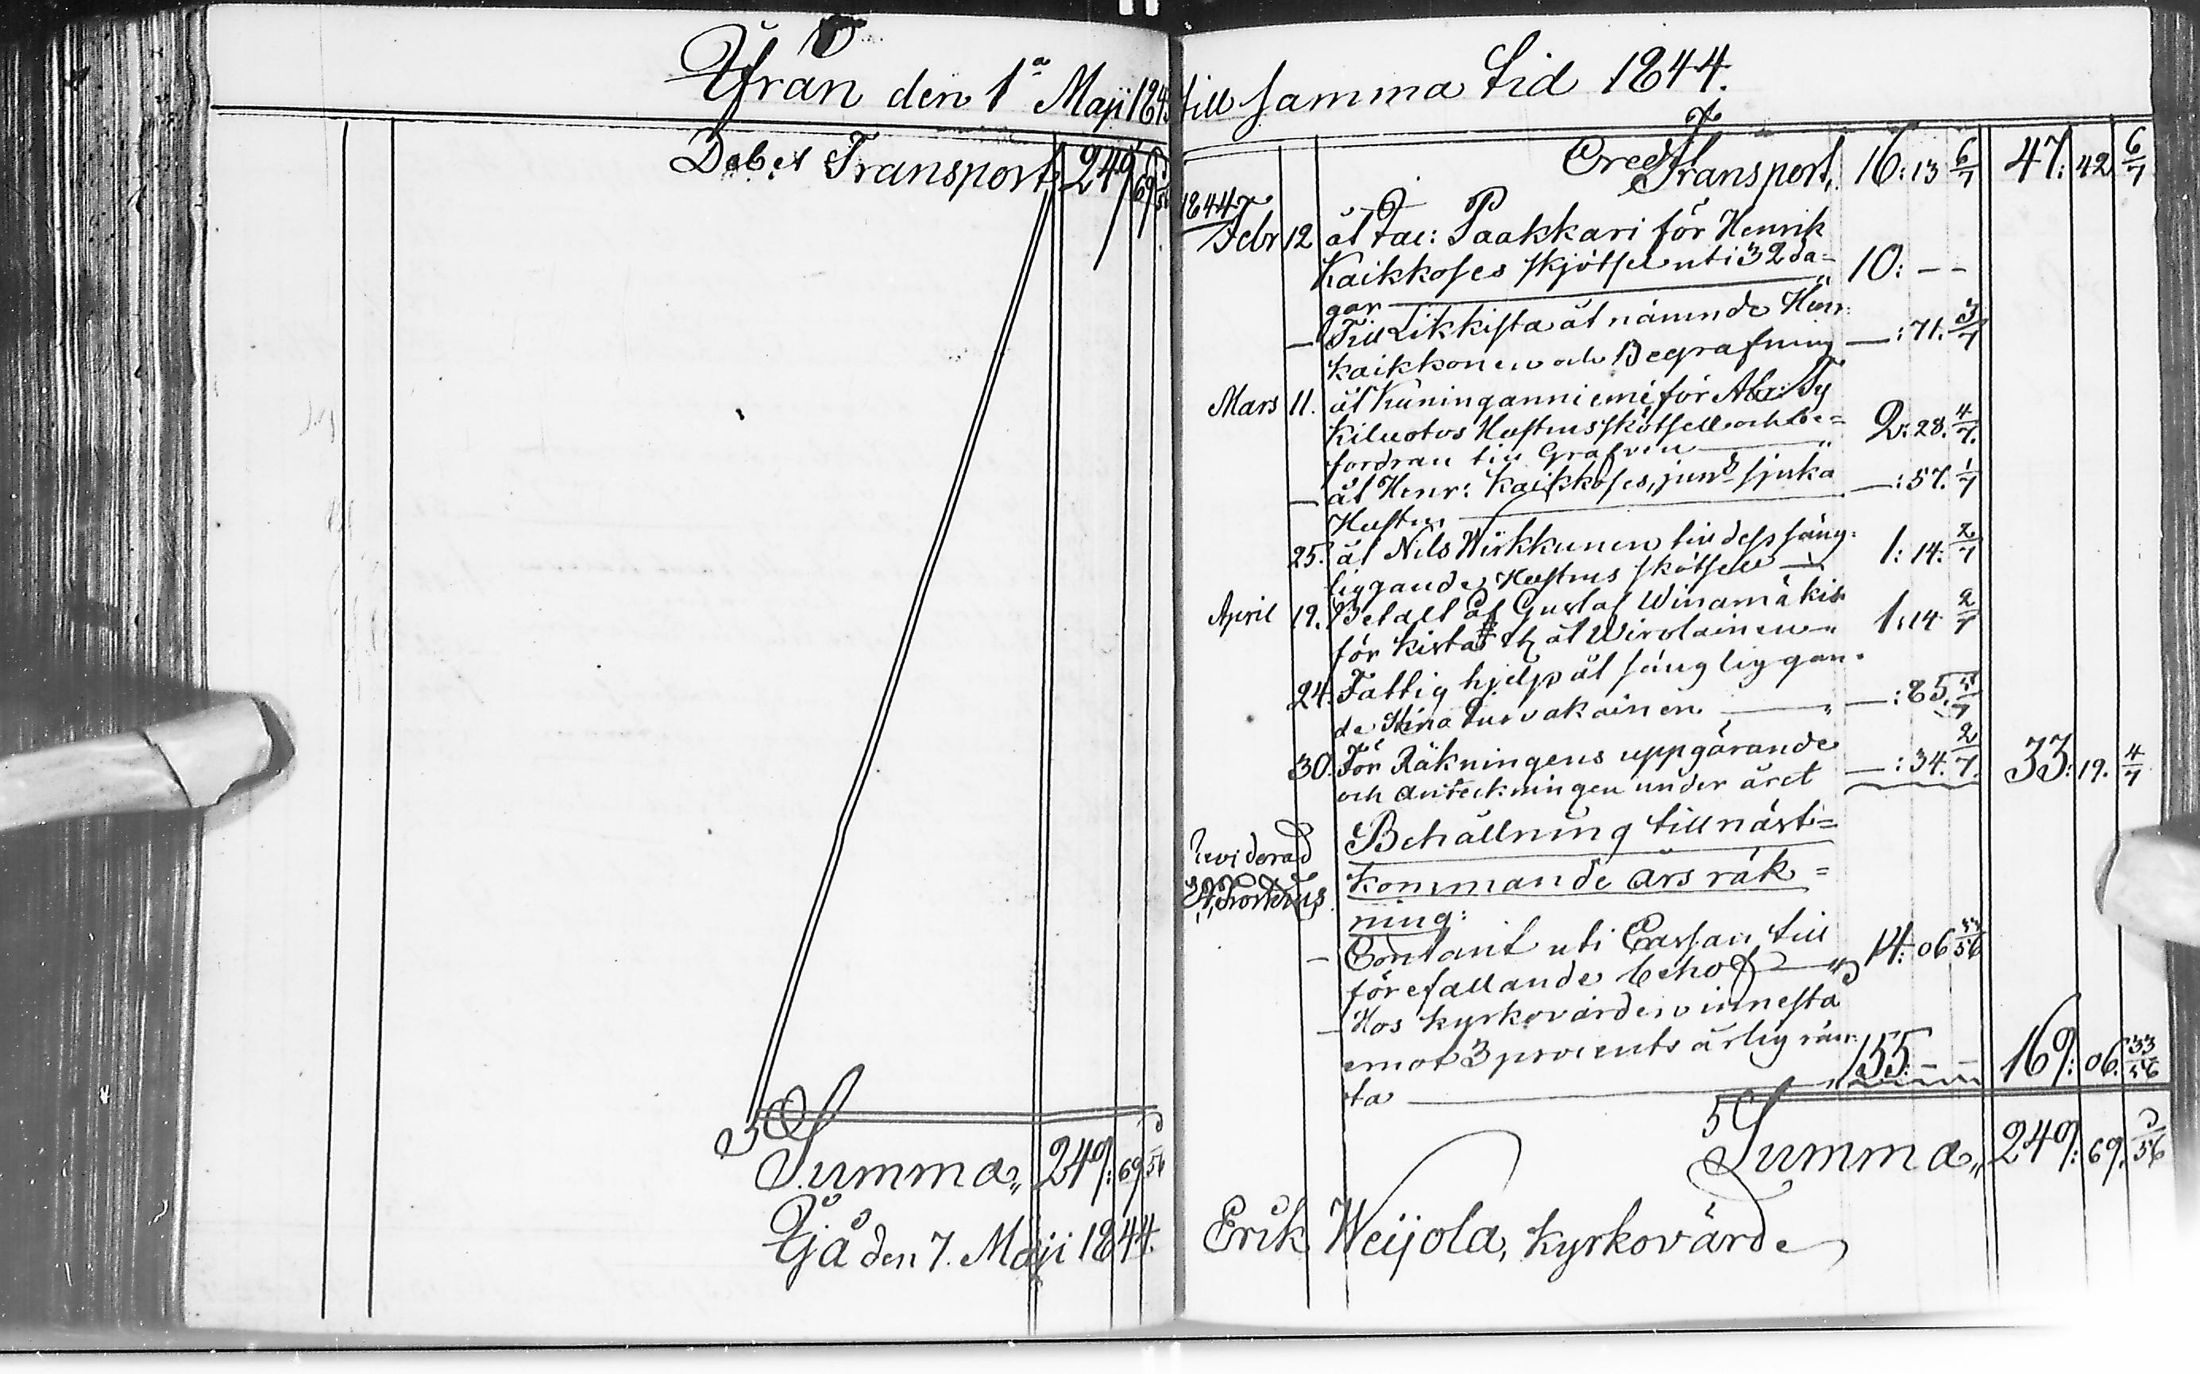 Ifrån den 1a Maji 1843
Debet Transport, 249 69 5/56
Summa, 249: 69. 5/56
Ijå den 7. Maji 1844.
till samma tid 1844.
Credit
Transport, 16: 13 6/7 47: 42 6/7
1844
Febr 12 åt Jac: Paakkari för Henrik
Kaikkoses skjötsel uti 32 da=
gar 10: - -
— Till Likkista åt nämnde Henr:
Kaikkonen och Begrafning —: 71. 3/7
Mars 11. åt Kuninganniemi för Abr: Sy
kiluotos Hustrus skötsell och be=
fordran till Grafven 2: 28. 4/7.
— åt Henr: Kaikkoses, junr sjuka
Hustru —: 57. 1/7
25. åt Nils Wirkkunen till dess säng.
liggande Hustrus skötsell 1: 14. 2/7
April 19. Betalt åt Gustaf Winamäki
för kista åt Wirolainen 1: 14 2/7
24. Fattig hjelp åt säng liggan.
de Stina Turvakainen —: 85. 5/7
30. För Räkningens uppgörande
och anteckningen under året —: 34. 2/7. 33: 19. 4/7
Reviderad
Behållning till näst=
kommande års räk=
ning:
— Contant uti Cassan till
förefallande behof 14: 06 33/56
— Hos kyrkovärden innestå
emot 3 procents årlig rän
ta 155: - - 169: 06. 33/56
Summa, 249: 69. 5/56
Erik Weijola, kyrkovärde